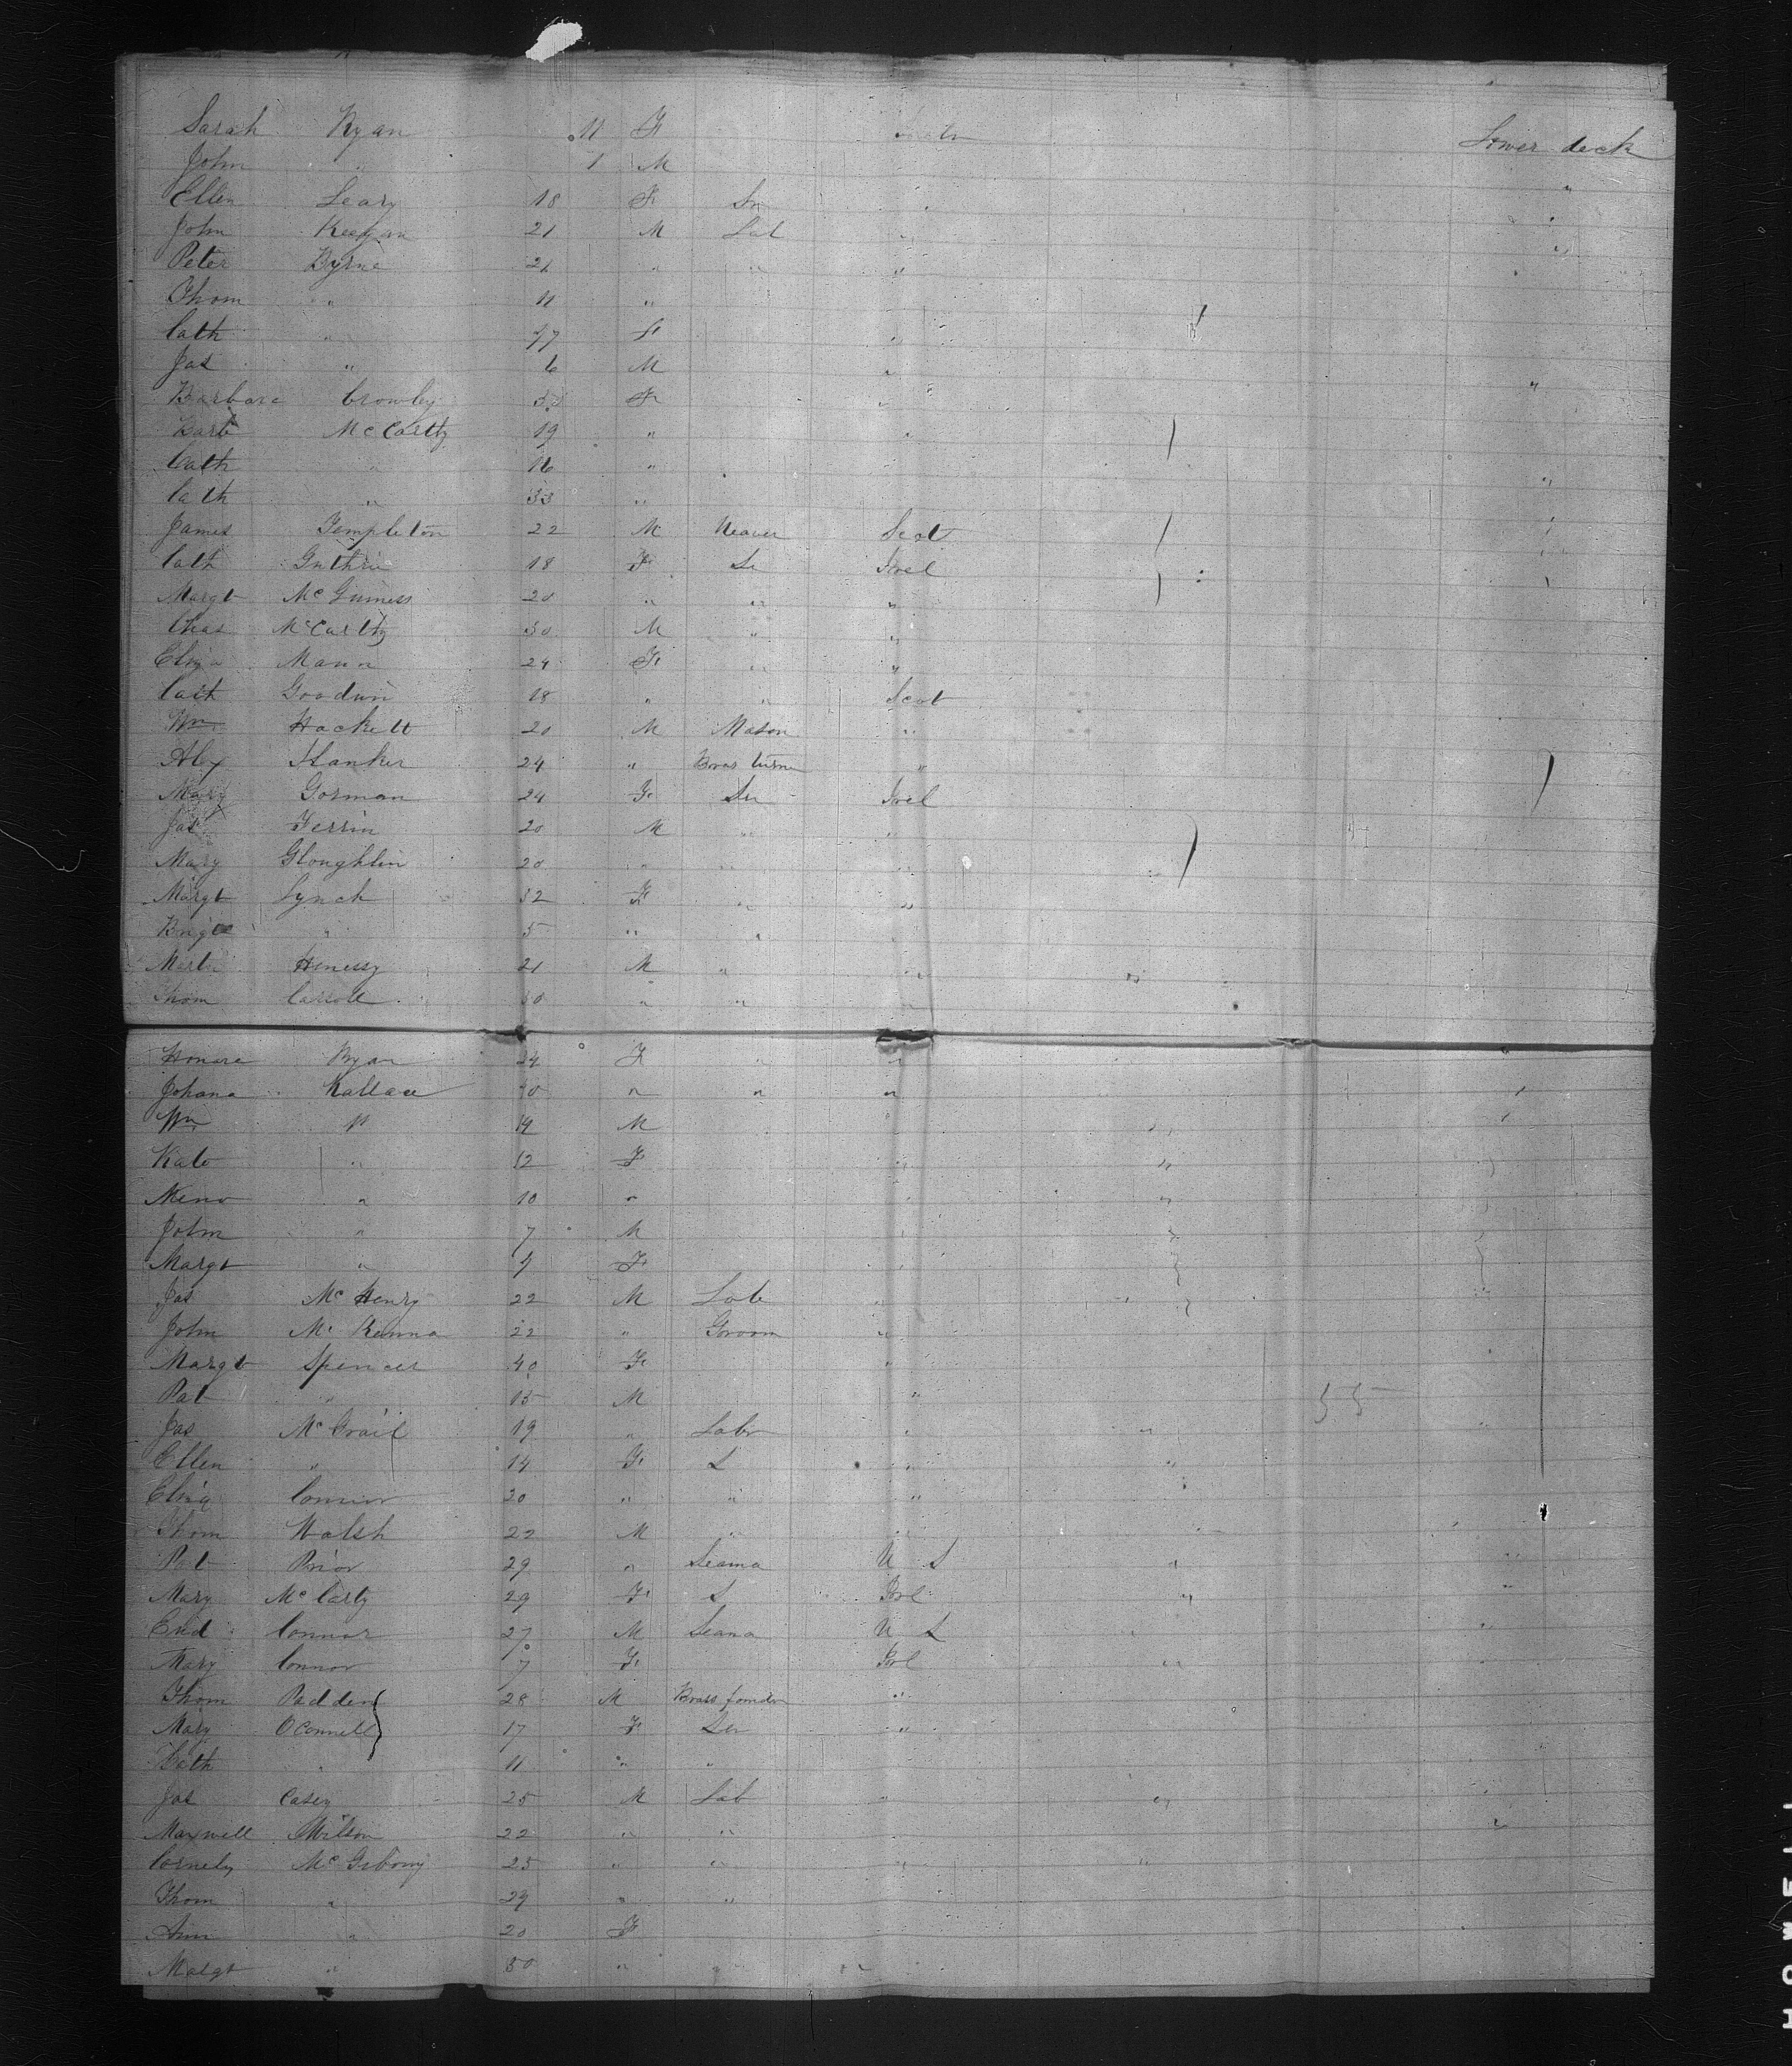 Sarah Ryan 11 F Lower deck
John " 1 M "
Ellen Leary 18 F Sr "
John Keegan 21 M Lab "
Peter Byrne 21 " " "
Thom " 11 "
Cath " 47 F "
Jas " 6 M "
Barbara Crowley F "
Barb McCarthy 19 " "
Cath " 16 "
Cath " 33 "
James Templeton 22 M Weaver Scot
Cath Guthrie 18 F Se Irel
Margt McGuiness 20 " " "
Chas McCarthy 30 M " "
Eliza Mann 24 F " "
Cath Goodwin 18 " " Scot
Wm Hackett 20 M Mason "
Alex 24 " Brass turner "
Mary Gorman 24 F Ser Irel
Jas Ferrin 20 M " "
Mary Gloughlin 20 " " "
Margt Lynch 32 F " "
" 5 " "
Martin Henessy 21 M " "
Thom Carroll 30 " " "
Honora Ryan 24 F " "
Johana Wallace 40 " " "
Wm " 14 M
Kate " 12 F "
" 10 " "
John " 7 M
Margt " 4 F
Jas McHenry 22 M Lab "
John McKenna 22 " Groom "
Margt Spencer 40 F "
Pat " 15 M " 55
Jas McGrail 19 " Labr "
Ellen " 14 F S "
Eliza Connor 20 " " "
Thom Walsh 22 M " "
Pat Prior 29 " Seama U S "
Mary McCarty 29 F S Irel "
Connor 27 M Seama U S
Mary Connor 7 F Irel "
Thom Padden 28 M Brass founder "
Mary OConnell 17 F Ser "
Cath " 11 " "
Jas Casey 25 M Lab " "
Maxwell Wilson 22 " " "
Cornely McGibony 25 " " " "
Thom " 29 " "
Ann " 20 F
Margt " 50 " " "